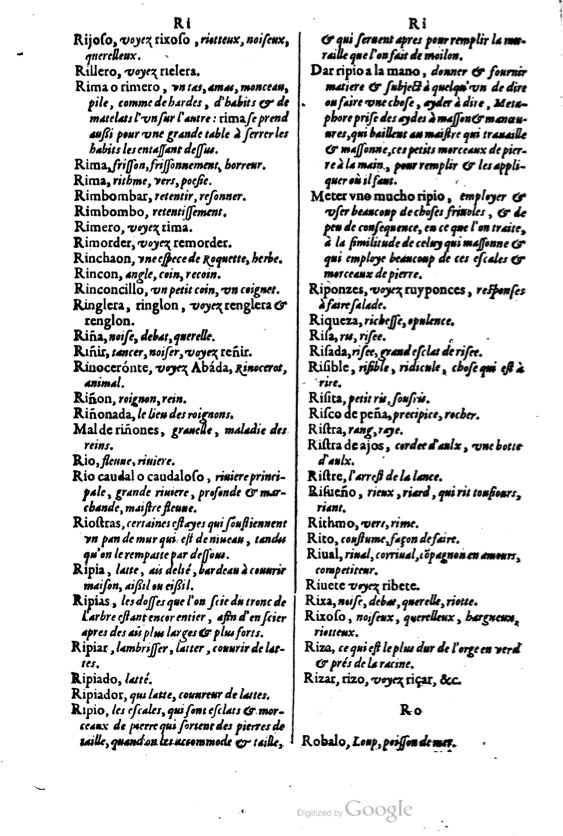 Ri
Rijoso, voyez rixoso, riotteux, noiseux,
querelleux.
Rillero, voyez rielera.
Rima o rimero, vn tas, amas, monceau,
pile, comme de hardes, d'habits & de
matelats l'vn sur l'autre: rima se prend
aussi pour vne grande table à serrer les
habits les entassant dessus.
Rima, frisson, frissonnement, horreur.
Rima, rithme, vers, poesie.
Rimbombar, retentir, resonner.
Rimbombo, retentissement.
Rimero, voyez rima.
Rimorder, voyez remorder.
Rinchaon, vne espece de Roquette, herbe.
Rincon, angle, coin, recoin.
Rinconcillo, vn petit coin, vn coignet.
Ringlera, ringlon, voyez renglera &
renglon.
Riña, noise, debat, querelle.
Riñir, tancer, noiser, voyez reñir.
Rinocerónte, voyez Abáda, Rinocerot,
animal.
Riñon, roignon, rein.
Riñonada, le lieu des roignons.
Mal de riñones, grauelle, maladie des
reins.
Rio, fleuue, riuiere.
Rio caudal o caudaloso, riuiere princi-
pale, grande riuiere, profonde & mar-
chande, maistre fleuue.
Riostras, certaines estayes qui soustiennent
vn pan de mur qui est de niueau, tandis
qu'on le rempaste par dessous.
Ripia, latte, ais delié, bardeau à couurir
maison, aissil ou eissil.
Ripias, les dosses que l'on scie du tronc de
l'arbre estant encor entier, afin d'en scier
apres des ais plus larges & plus forts.
Ripiar, lambrisser, latter, couurir de lat-
tes.
Ripiado, latté.
Ripiador, qui latte, couureur de lattes.
Ripio, les escales, qui sont esclats & mor-
ceaux de pierre qui sortent des pierres de
taille, quand on les accommode & taille,
Ri
& qui seruent apres pour remplir la mu-
raille que l'on fait de moilon.
Dar ripio a la mano, donner & fournir
matiere & subject à quelqu'vn de dire
ou faire vne chose, ayder à dire, Meta-
phore prise des aydes à masson & manœu-
ures, qui baillent au maistre qui trauaille
& massonne, ces petits morceaux de pier-
re à la main, pour remplir & les appli-
quer où il faut.
Meter vno mucho ripio, employer &
vser beaucoup de choses friuoles, & de
peu de consequence, en ce que l'on traite,
à la similitude de celuy qui massonne &
qui employe beaucoup de ces escales &
morceaux de pierre.
Riponzes, voyez ruyponces, responses
à faire salade.
Riqueza, richesse, opulence.
Risa, ris, risee.
Risada, risee, grand esclat de risee.
Risible, risible, ridicule, chose qui est à
rire.
Risita, petit ris, sousris.
Risco de peña, precipice, rocher.
Ristra, rang, raye.
Ristra de ajos, corde d'aulx, vne botte
d'aulx.
Ristre, l'arrest de la lance.
Risueño, rieux, riard, qui rit tousiours,
riant.
Rithmo, vers, rime.
Rito, coustume, façon de faire.
Riual, riual, corriual, cõpagnon en amours,
competiteur.
Riuete voyez ribete.
Rixa, noise, debat, querelle, riotte.
Rixoso, noiseux, querelleux, hargneux,
riotteux.
Riza, ce qui est le plus dur de l'orge en verd
& prés de la racine.
Rizar, rizo, voyez riçar, &c.
Ro
Robalo, Loup, poisson de mer.
Digitized by Google